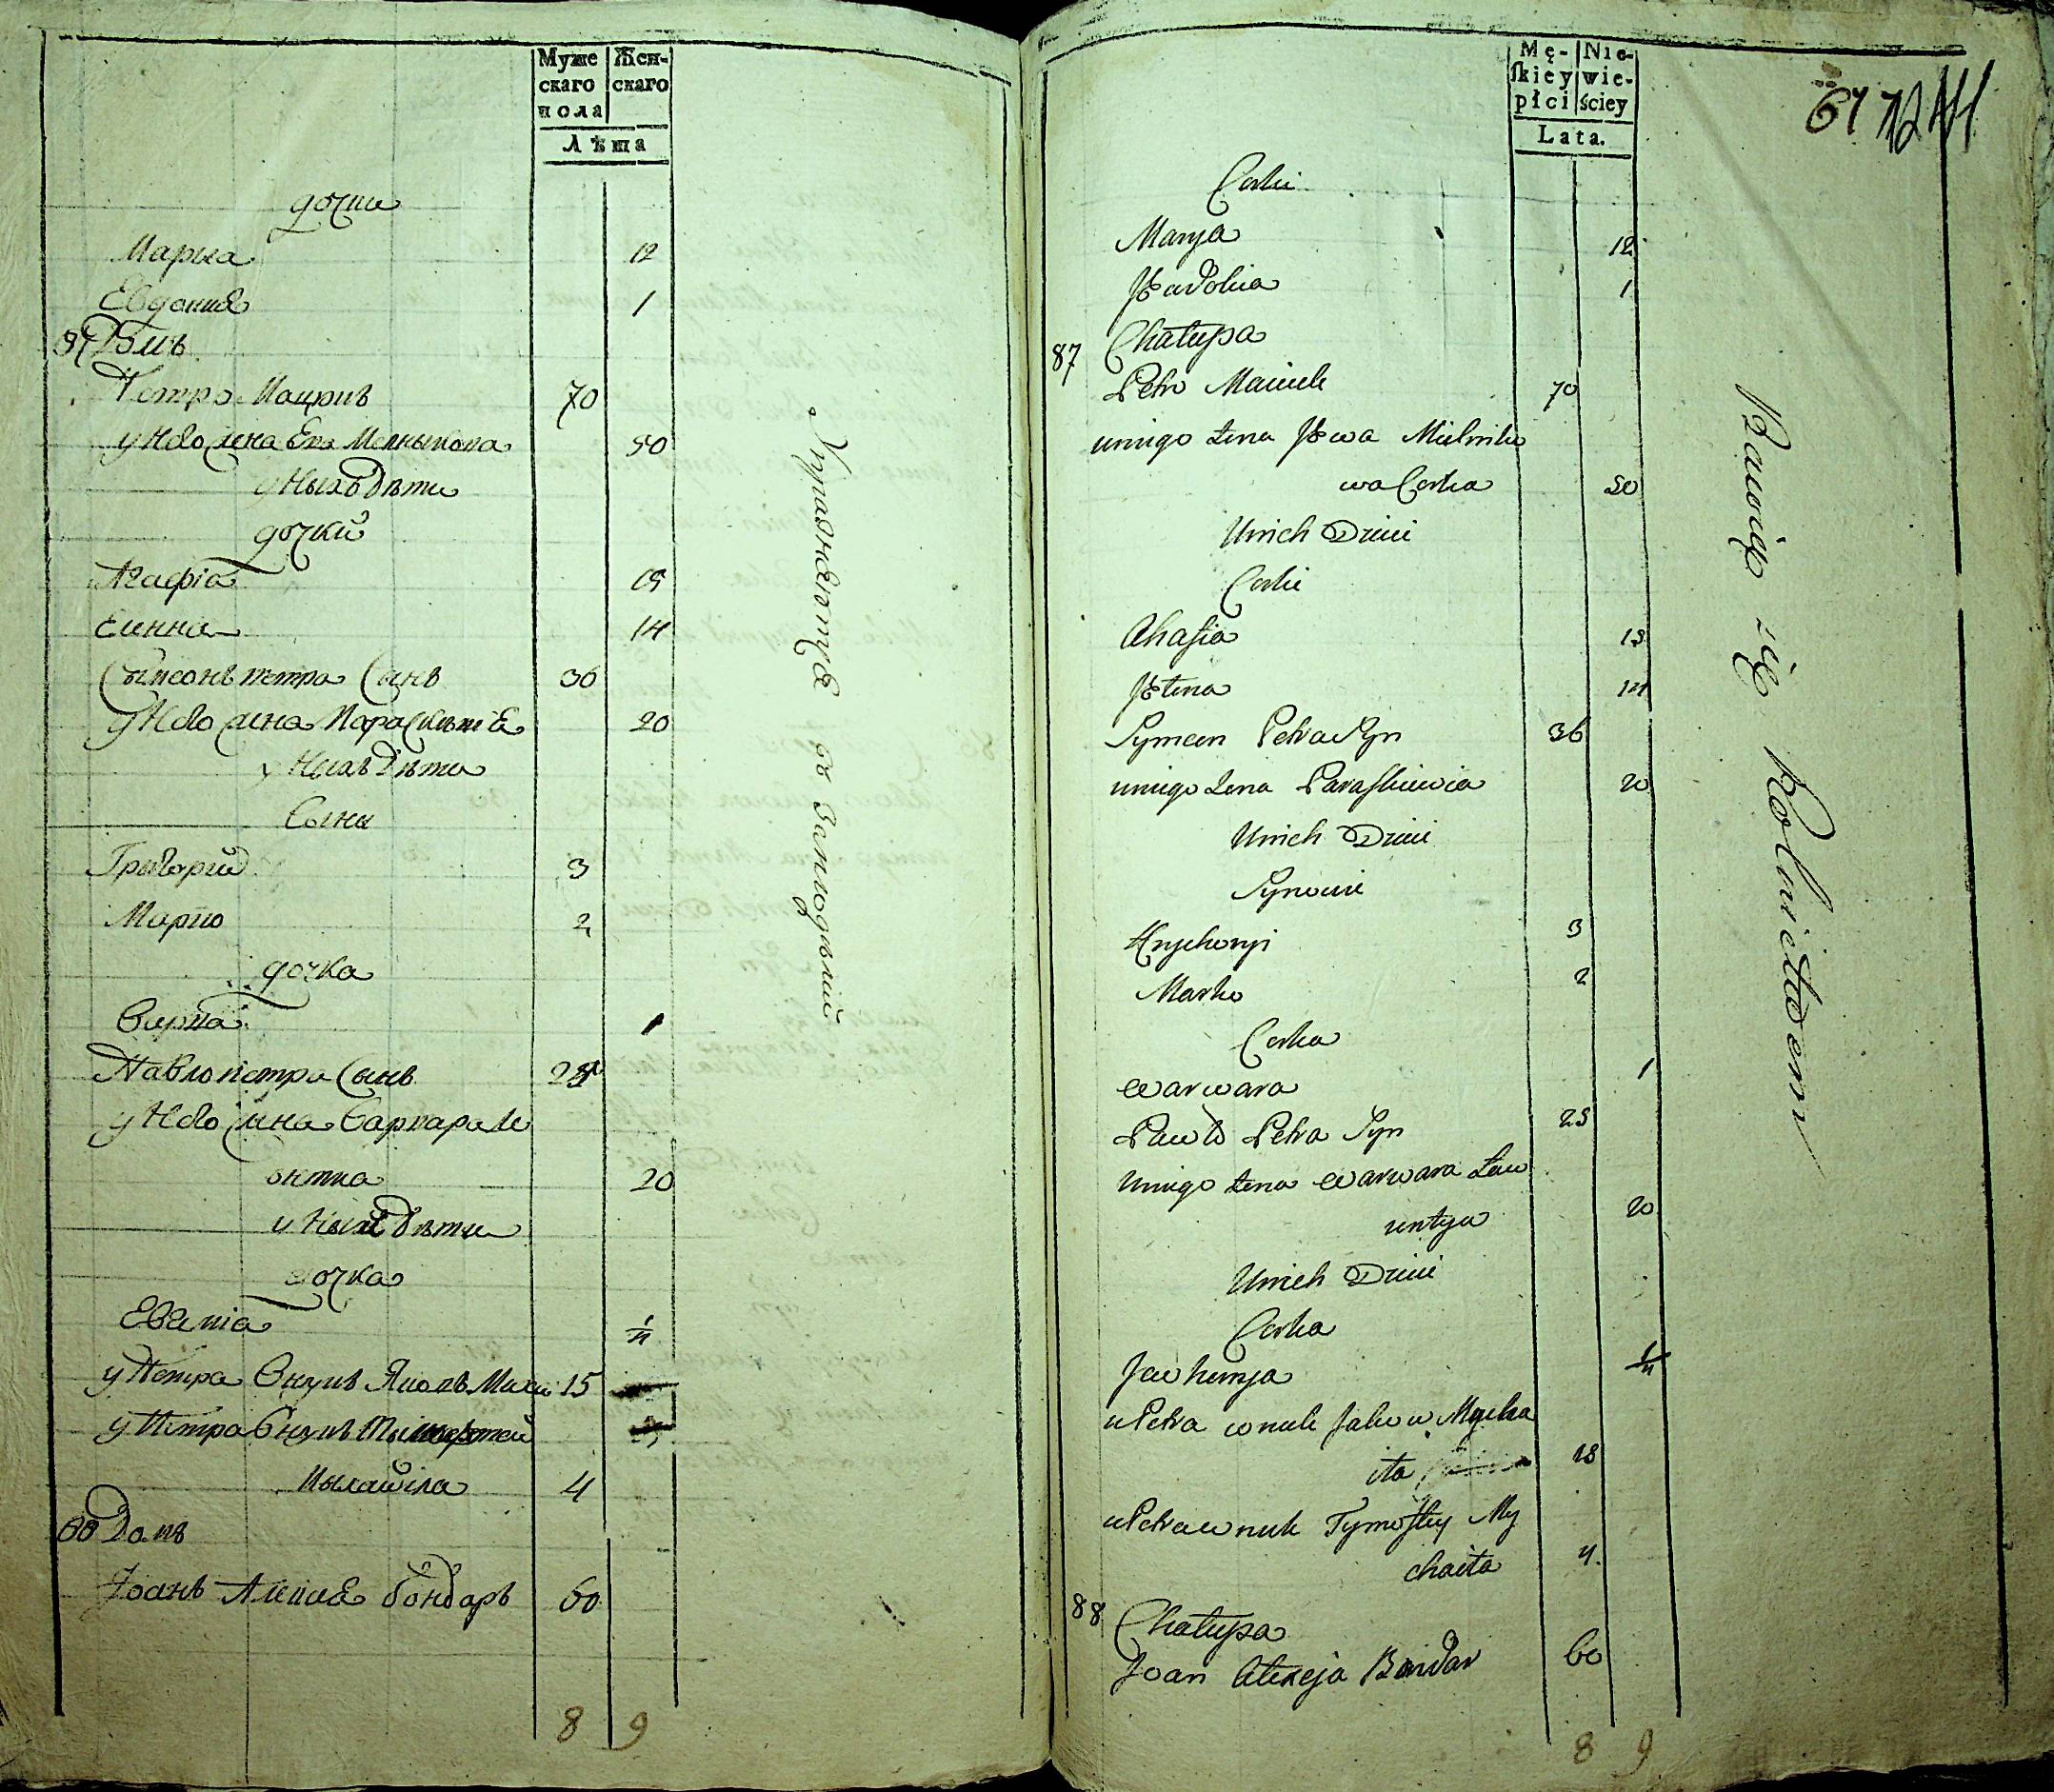 Муже
скаго
пола
Жен-
скаго
Лѣта
дочки
Марꙗ 12
Евдокиꙗ 1
87 Домъ
Петро Мацукъ 70
у Него жена Ева Мелныкова 50
у Ныхъ Дѣти
дочки
Агафіа 15
Еинна 14
Сымеонъ петра Сынъ 36
у Него жена Параскевіꙗ 20
у Ныхъ Дѣти
Сыны
Григорий 3
Марко 2
дочка
Варвара 1
Павло петра Сынъ 25
у Него жина Варвара Ле
онтиа 20
у Ныхъ Дѣти
дочка
Евгиніа 1/4
у Петра Внукъ Яковъ Миха 15
у Петра Внукъ Тымофтей
Мыхайла 4
88 Домъ
Іоанъ Алексеꙗ бондаръ 60
8 9
Упражнꙗютсꙗ въ Земледѣлий
Mę-
skiey
płci
Nie-
wie-
ściey
Lata.
67 72 44
Corki
Marya 12
Jewdokia 1
87 Chałupa
Petro Maciuk 70
uniego żena Jewa Mielniko
wa Corka 50
Unich Dzieci
Corki
Ahafia 15
Jelena 14
Symeon Petra Syn 36
uniego żena Paraskiewia 20
Unich Dzieci
Synowie
Hryhoryi 3
Marko 2
Corka
Warwara 1
Pawło Petra Syn 25
Uniego żena Warwara Łew
untya 20
Unich Dzieci
Corka
Jewhenya 1/4
u Petra wnuk Jakow Mycha
iła 15
u Petra wnuk Tymoftey My
chaiła 4.
88 Chałupa
Joan Alexeja Bondar 60
8 9
Bawią się Rolnictwem